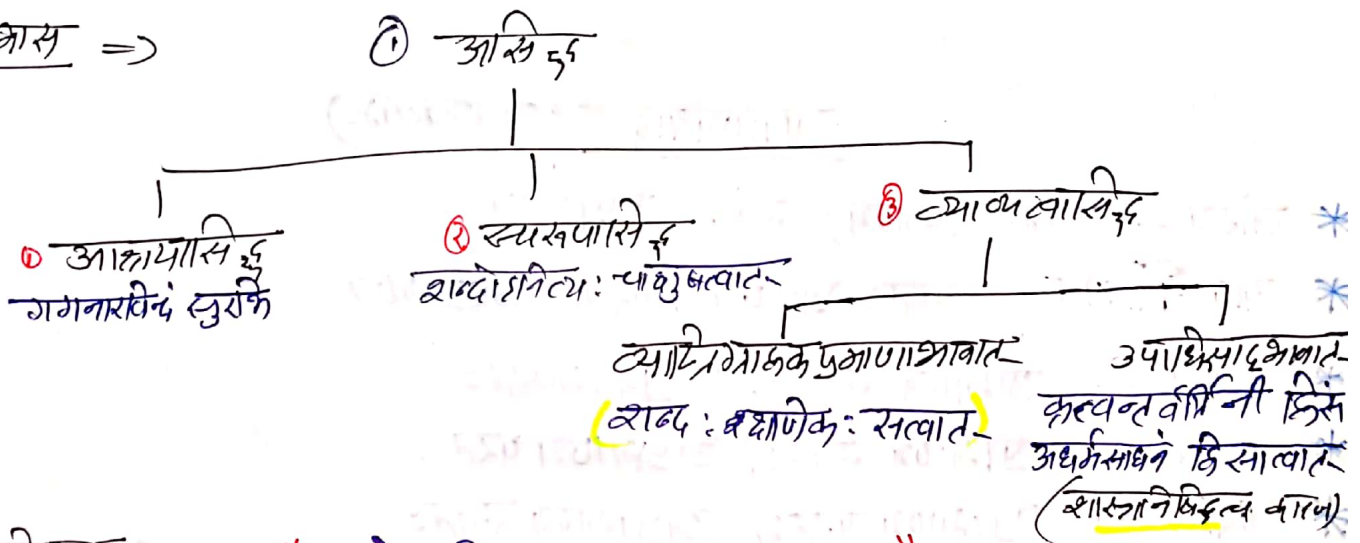 ⇒ ① असिद्ध
① आश्रयासिद्ध
गगनारविन्दं सुरभि
② स्वरूपासिद्ध
शब्दोऽनित्यः चाक्षुषत्वात्
③ व्याप्यत्वासिद्ध
व्याप्तिग्राहक प्रमाणाभावात्
(शब्दः क्षणिकः सत्वात्)
उपाधिसद्भावात्
क्रत्वन्तर्वर्तिनी हिंसा
अधर्मसाधनं हिंसात्वात्
(शास्त्रनिषिद्धत्व कारण)